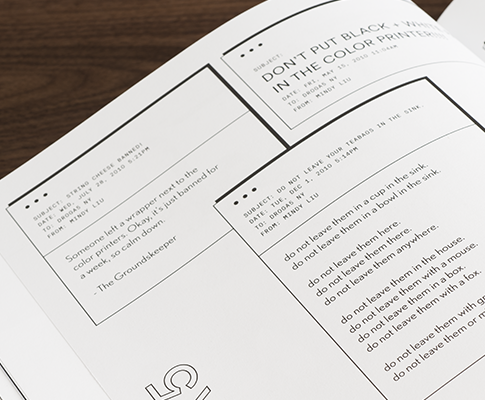 SUBJECT:
DON'T PUT BLACK + WHITE
IN THE COLOR PRINTER
DATE: FRI, MAY 15, 2010 11:04AM
TO: DROGAS NY
FROM: MINDY LIU
SUBJECT: STRING CHEESE BANNED!
DATE: WED, JULY 28, 2010 5:21PM
TO: DROGAS NY
FROM: MINDY LIU
Someone left a wrapper next to the
color printers. Okay, it's just banned for
a week, so calm down.
- The Groundskeeper
SUBJECT: DO NOT LEAVE YOUR TEABAGS IN THE SINK.
DATE: TUE, DEC 1, 2010 5:14PM
TO: DROGAS NY
FROM: MINDY LIU
do not leave them in a cup in the sink.
do not leave them in a bowl in the sink.
do not leave them here.
do not leave them there.
do not leave them anywhere.
do not leave them in the house.
do not leave them with a mouse.
do not leave them in a box.
do not leave them with a fox.
do not leave them with
do not leave them or